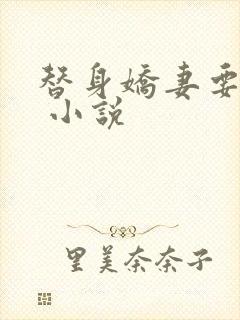 替身嬌妻要
小說
里美奈奈子